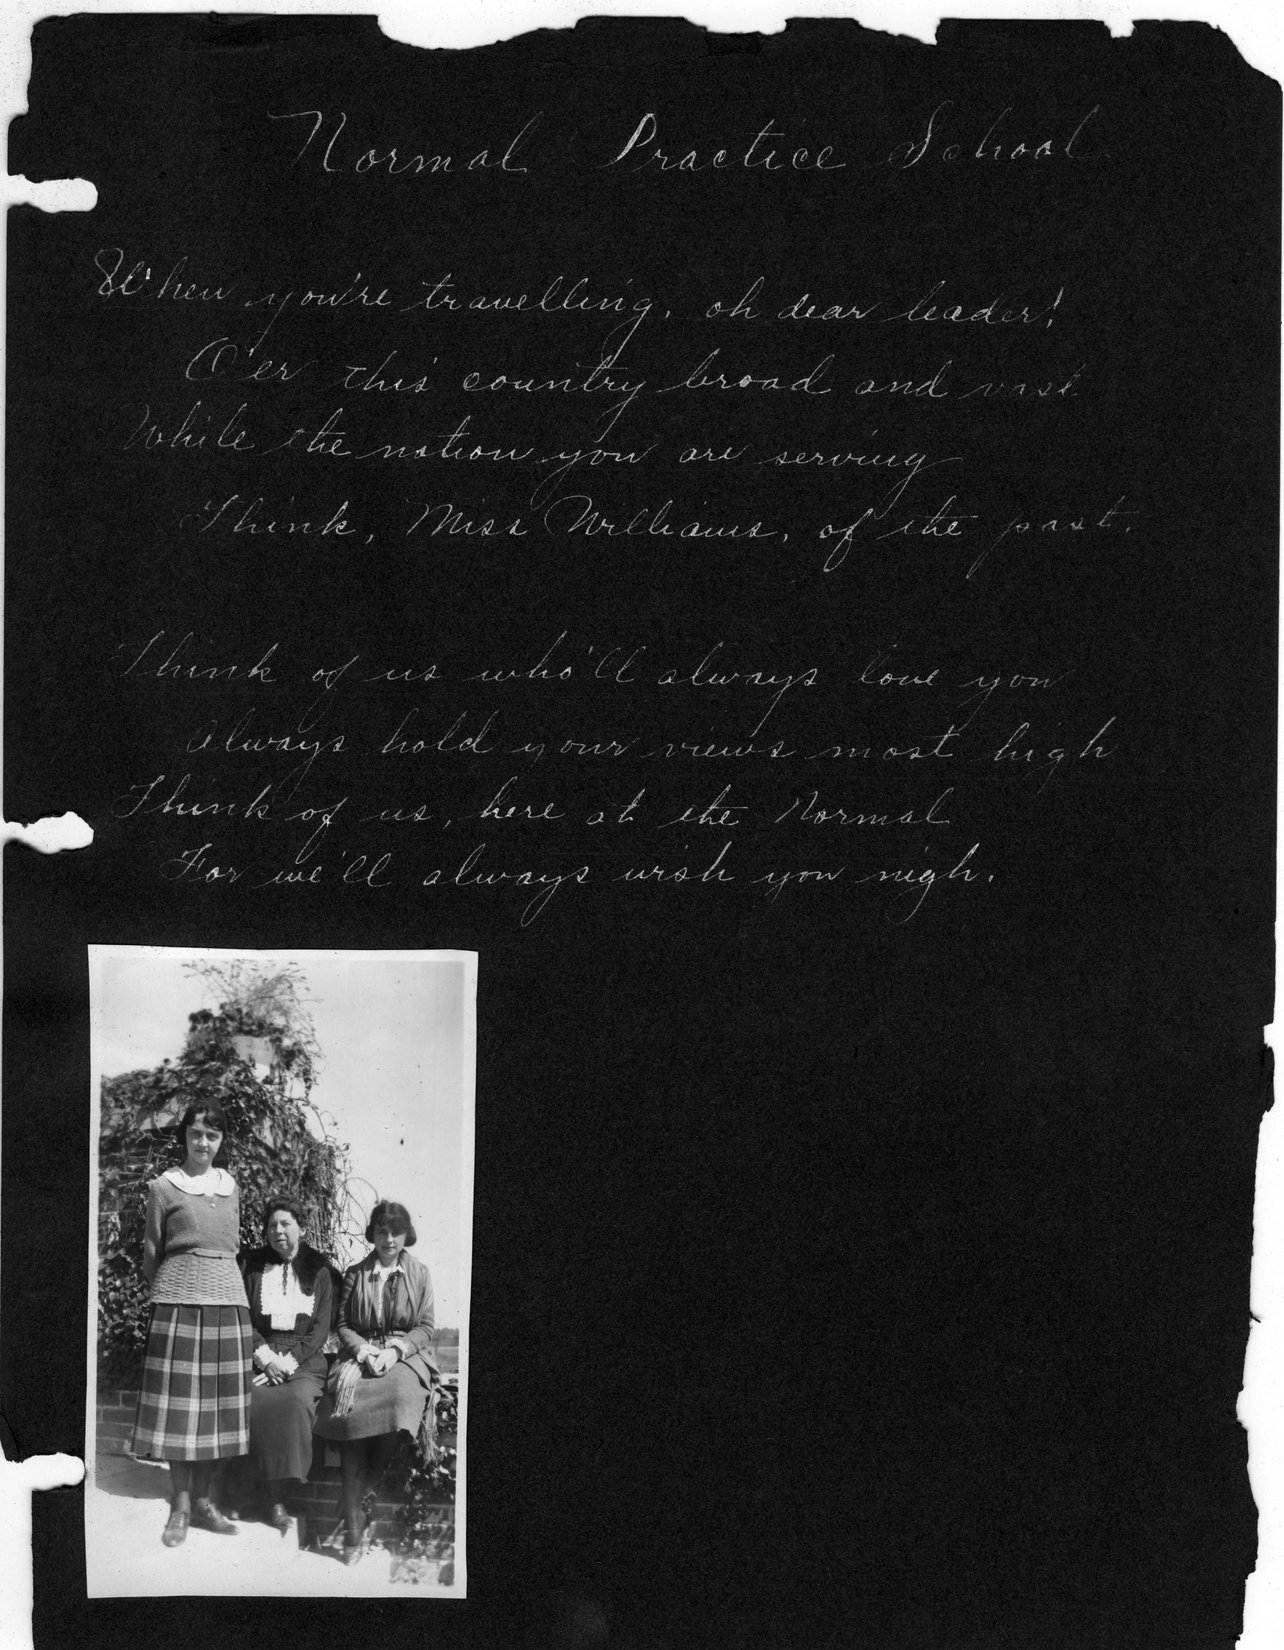 Normal Practice School
When you're travelling, oh dear leader!
O'er this country broad and vast
While the nation you are serving
Think, Miss Williams, of the past.
Think of us who'll always love you
Always hold your views most high
Think of us, here at the Normal
For we'll always wish you nigh.